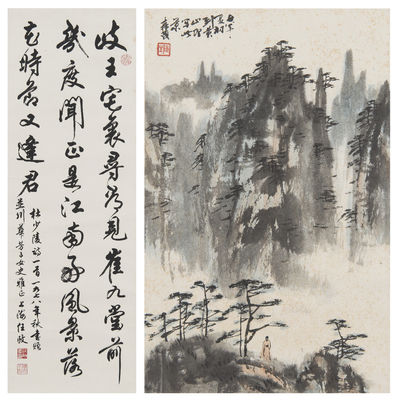 岐王宅裏尋常見崔九堂前
幾度聞正是江南好風景落
花時節又逢君
杜少陵詩一首一九七八年秋書贈
並川 芳子女史雅正上海任政